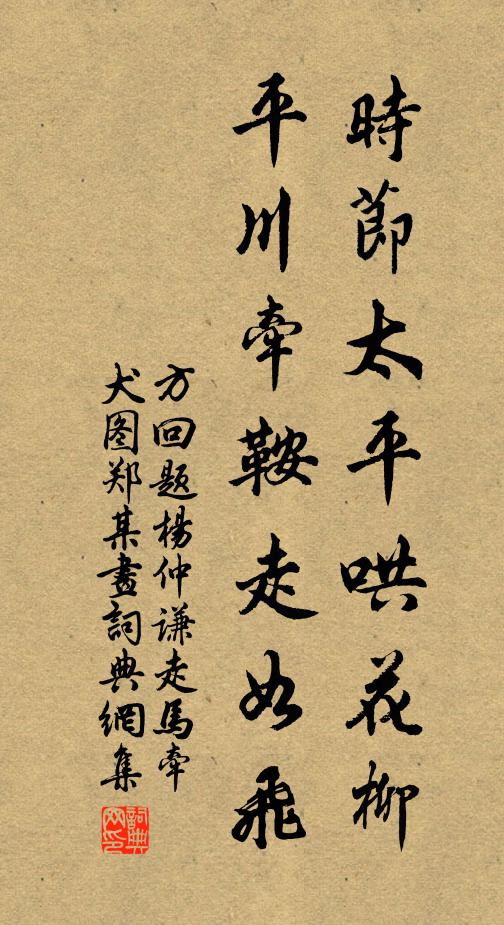 時節太平哄花柳
平川牽鞍走如飛
方回題楊仲謙走馬牽
犬图郑某畫詞典網集
詞典
网印